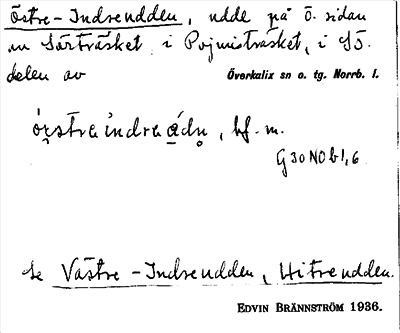 Östre-Indreudden, udde på Ö. sidan
av Särträsket i Pojmisträsket, i SÖ.
delen av Överkalix sn o. tg. Norrb. l.
bf. m.
G30NObI,6
Se Västre-Indreudden, Uitreudden.
EDVIN BRÄNNSTRÖM 1936.